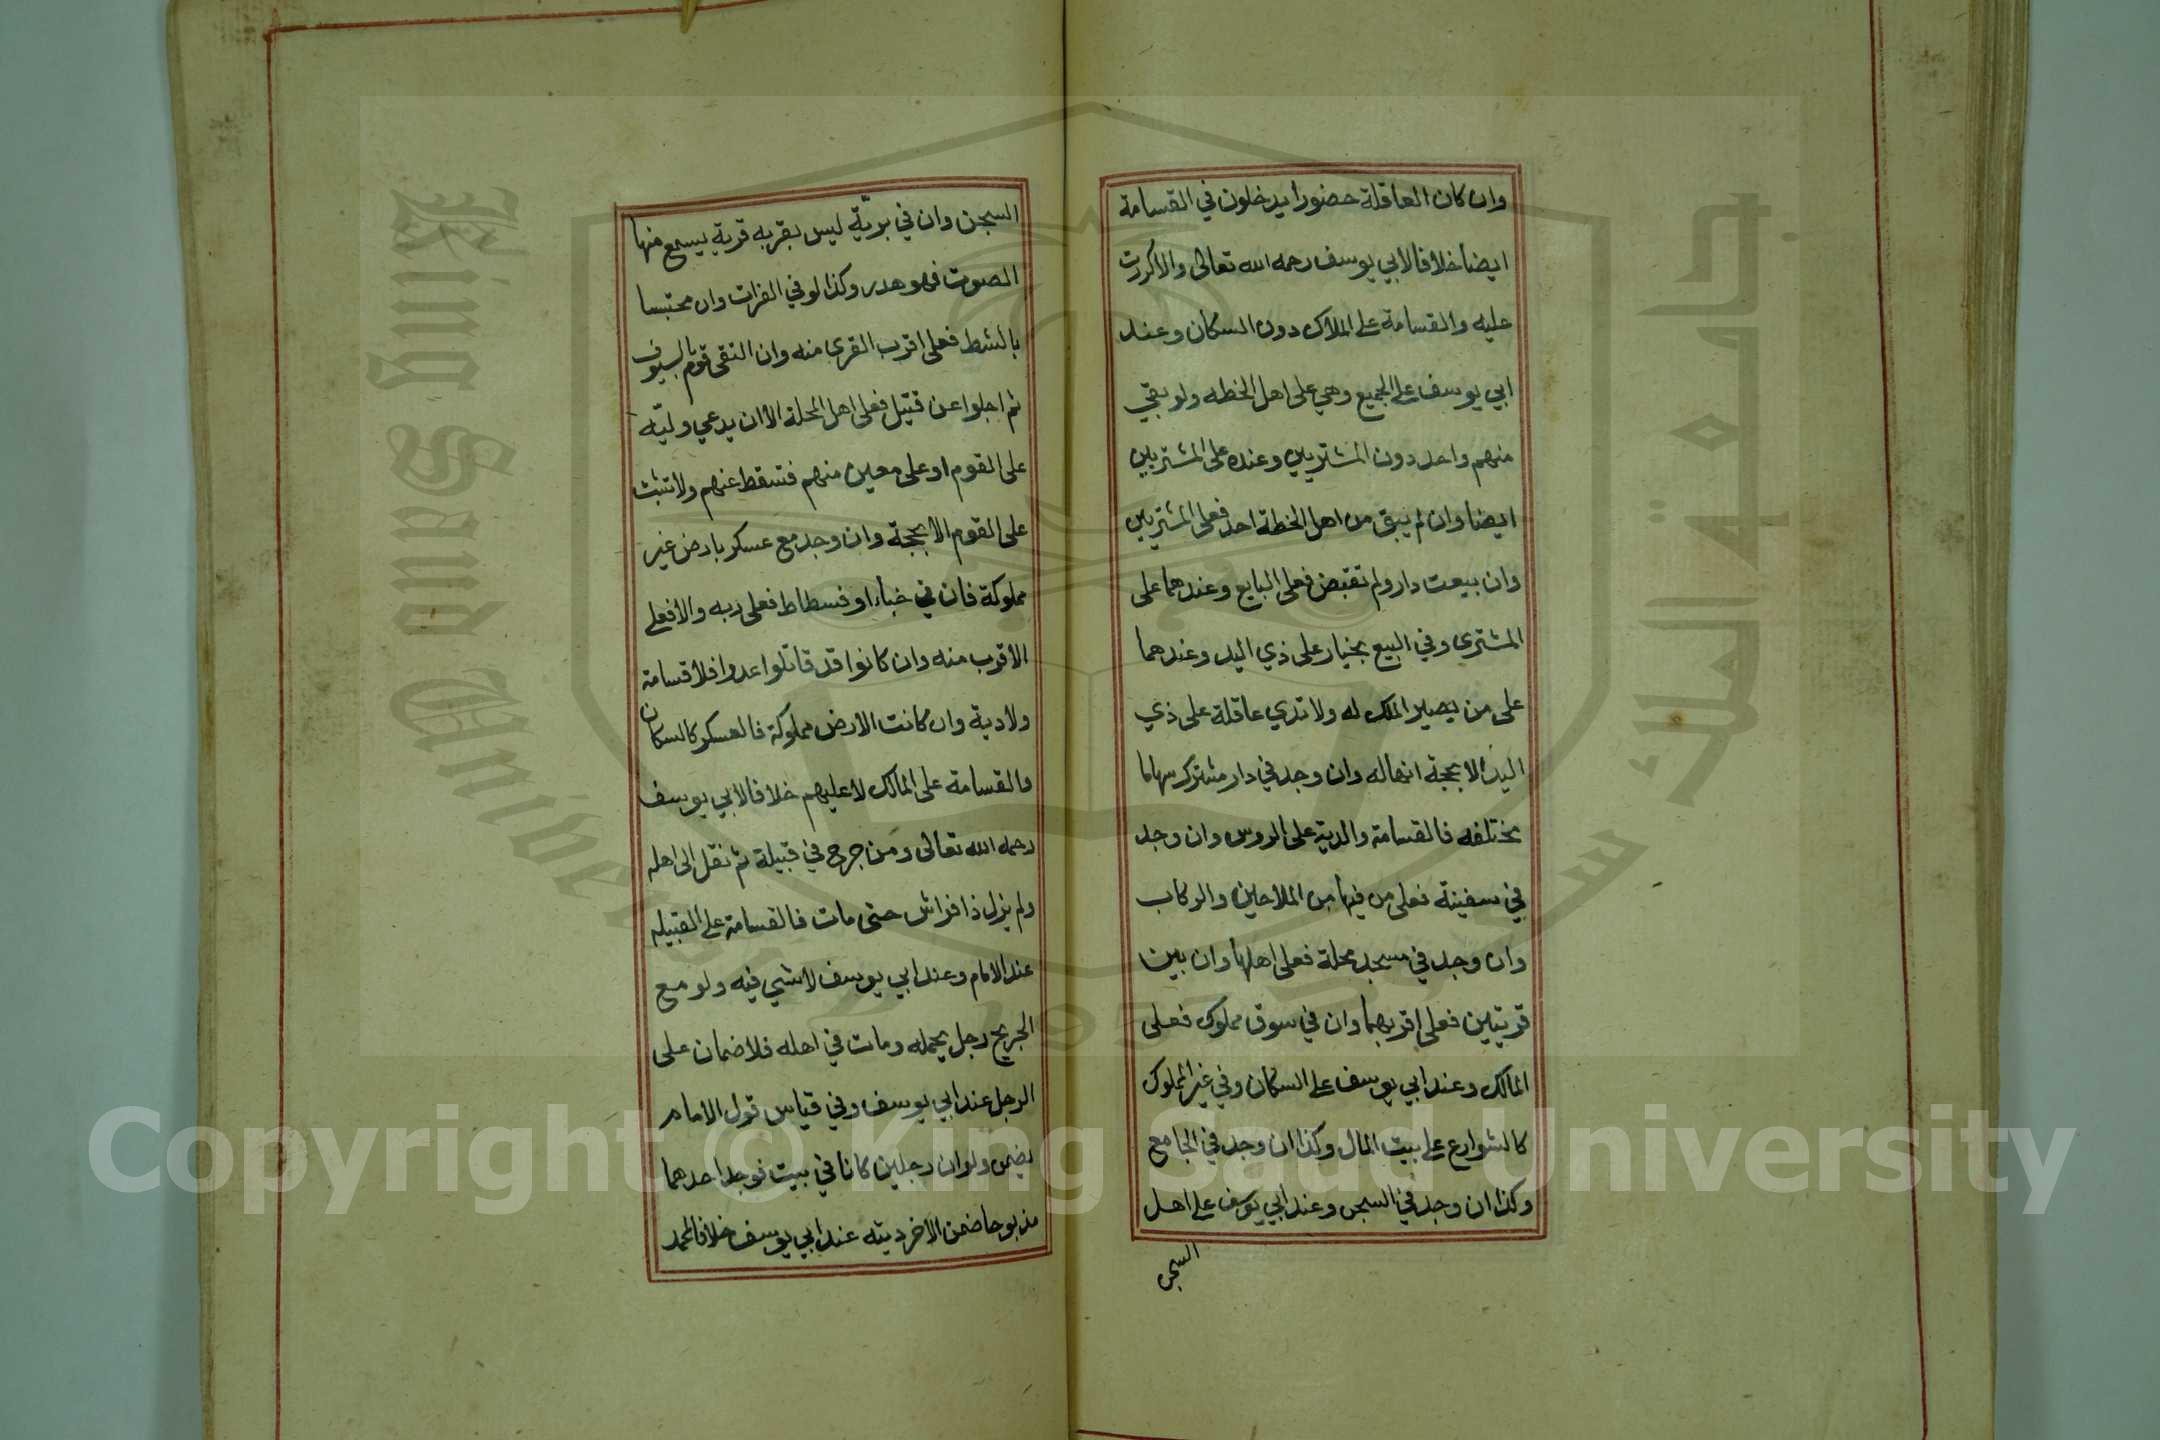 وان كان العاقلة حضورا يدخلون في القسامة
ايضا خلافا لابي يوسف رحمه الله تعالى والا كررت
عليه والقسامة على الملاك دون السكان وعند
ابي يوسف على الجميع وهي على اهل الخطه ولو بقي
منهم واحد دون المشتريين وعنده على المشتريين
ايضا وان لم يبق من اهل الخطة احد فعلى المشتريين
وان بيعت دار ولم تقبض فعلى البايع وعندهما على
المشتري وفي البيع بخيار على ذي اليد وعندهما
على من يصير الملك له ولا تدي عاقلة على ذي
اليد الا بحجة انها له وان وجد في دار مشتركة سهاما
مختلفه فالقسامة والدية على الروس وان وجد
في سفينة فعلى من فيها من الملاحين والركاب
وان وجد في مسجد محلة فعلى اهلها وان بين
قريتين فعلى اقربهما وان في سوق مملوك فعلى
المالك وعند ابي يوسف على السكان وفي غير المملوك
كالشوارع على بيت المال وكذا ان وجد في الجامع
وكذا ان وجد في السجن وعند ابي يوسف على اهل
السجن
السجن وان في بريّة ليس بقربه قرية يسمع منها
الصوت فهو هدر وكذا لو في الفرات وان محتبسا
بالشط فعلى اقرب القرى منه وان التقى قوم بالسيوف
ثم اجلوا عن قتيل فعلى اهل المحلة الا ان يدعي وليّه
على القوم او على معين منهم فتسقط عنهم ولا تثبت
على القوم الا بحجة وان وجد مع عسكر بارض غير
مملوكة فان في خباء او فسطاط فعلى ربه والا فعلى
الاقرب منه وان كانوا قد قاتلوا عدوا فلا قسامة
ولا دية وان كانت الارض مملوكة فالعسكر كالسكان
والقسامة على المالك لا عليهم خلافا لابي يوسف
رحمه الله تعالى ومن جرح في قبيلة ثم نقل الى اهله
ولم يزل ذا فراش حتى مات فالقسامة على القبيله
عند الامام وعند ابي يوسف لا شي فيه ولو مع
الجريح رجل يحمله ومات في اهله فلا ضمان على
الرجل عند ابي يوسف وفي قياس قول الامام
يضمن ولو ان رجلين كانا في بيت فوجد احدهما
مذبوحا ضمن الاخر ديته عند ابي يوسف خلافا لمحمد
King Saud University
جامعة الملك سعود
1957
Copyright © King Saud University